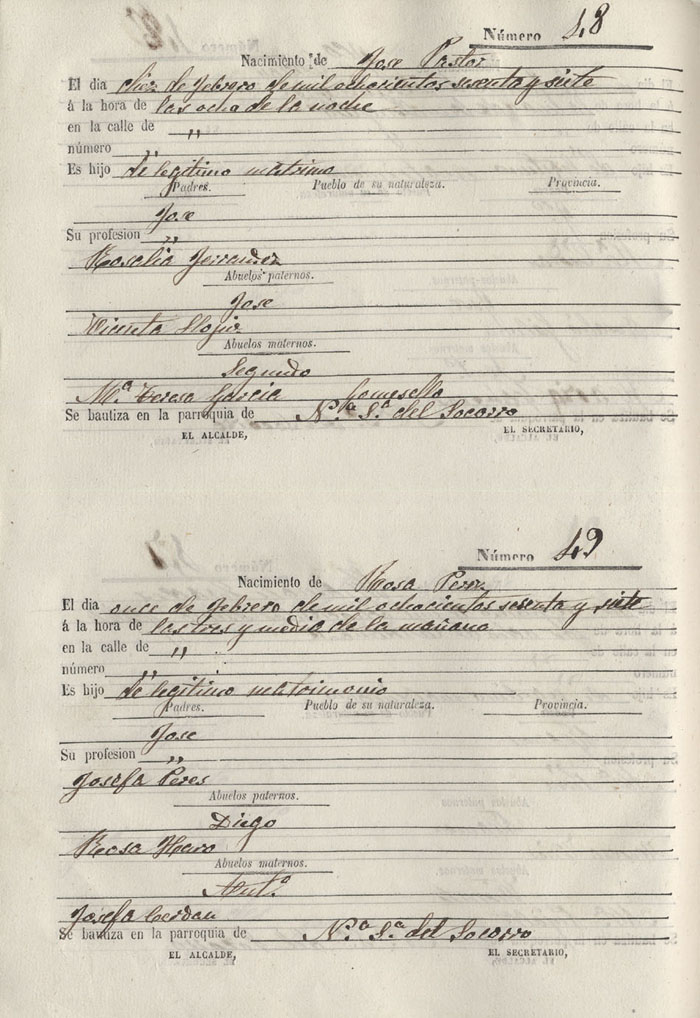 Número 48
Nacimiento de Jose Pastor
El dia diez de Febrero de mil ochocientos sesenta y siete
á la hora de las ocho de la noche
en la calle de "
número "
Es hijo de legitimo matrimo
Padres. Pueblo de su naturaleza. Provincia.
Jose
Su profesion "
Rosalia Ferrandez
Abuelos paternos.
Jose
Vicenta
Abuelos maternos.
Segundo
Mª Teresa Garcia Gomesello
Se bautiza en la parroquia de Nª Sª del Socorro
EL ALCALDE, EL SECRETARIO,
Número 49
Nacimiento de Rosa Perez
El dia once de Febrero de mil ochocientos sesenta y siete
á la hora de las tres y media de la mañana
en la calle de "
número "
Es hijo de legitimo matrimonio
Padres. Pueblo de su naturaleza. Provincia.
Jose
Su profesion "
Josefa Peres
Abuelos paternos.
Diego
Rosa Haro
Abuelos maternos.
Antº
Josefa Cerdan
Se bautiza en la parroquia de Nª Sª del Socorro
EL ALCALDE, EL SECRETARIO,